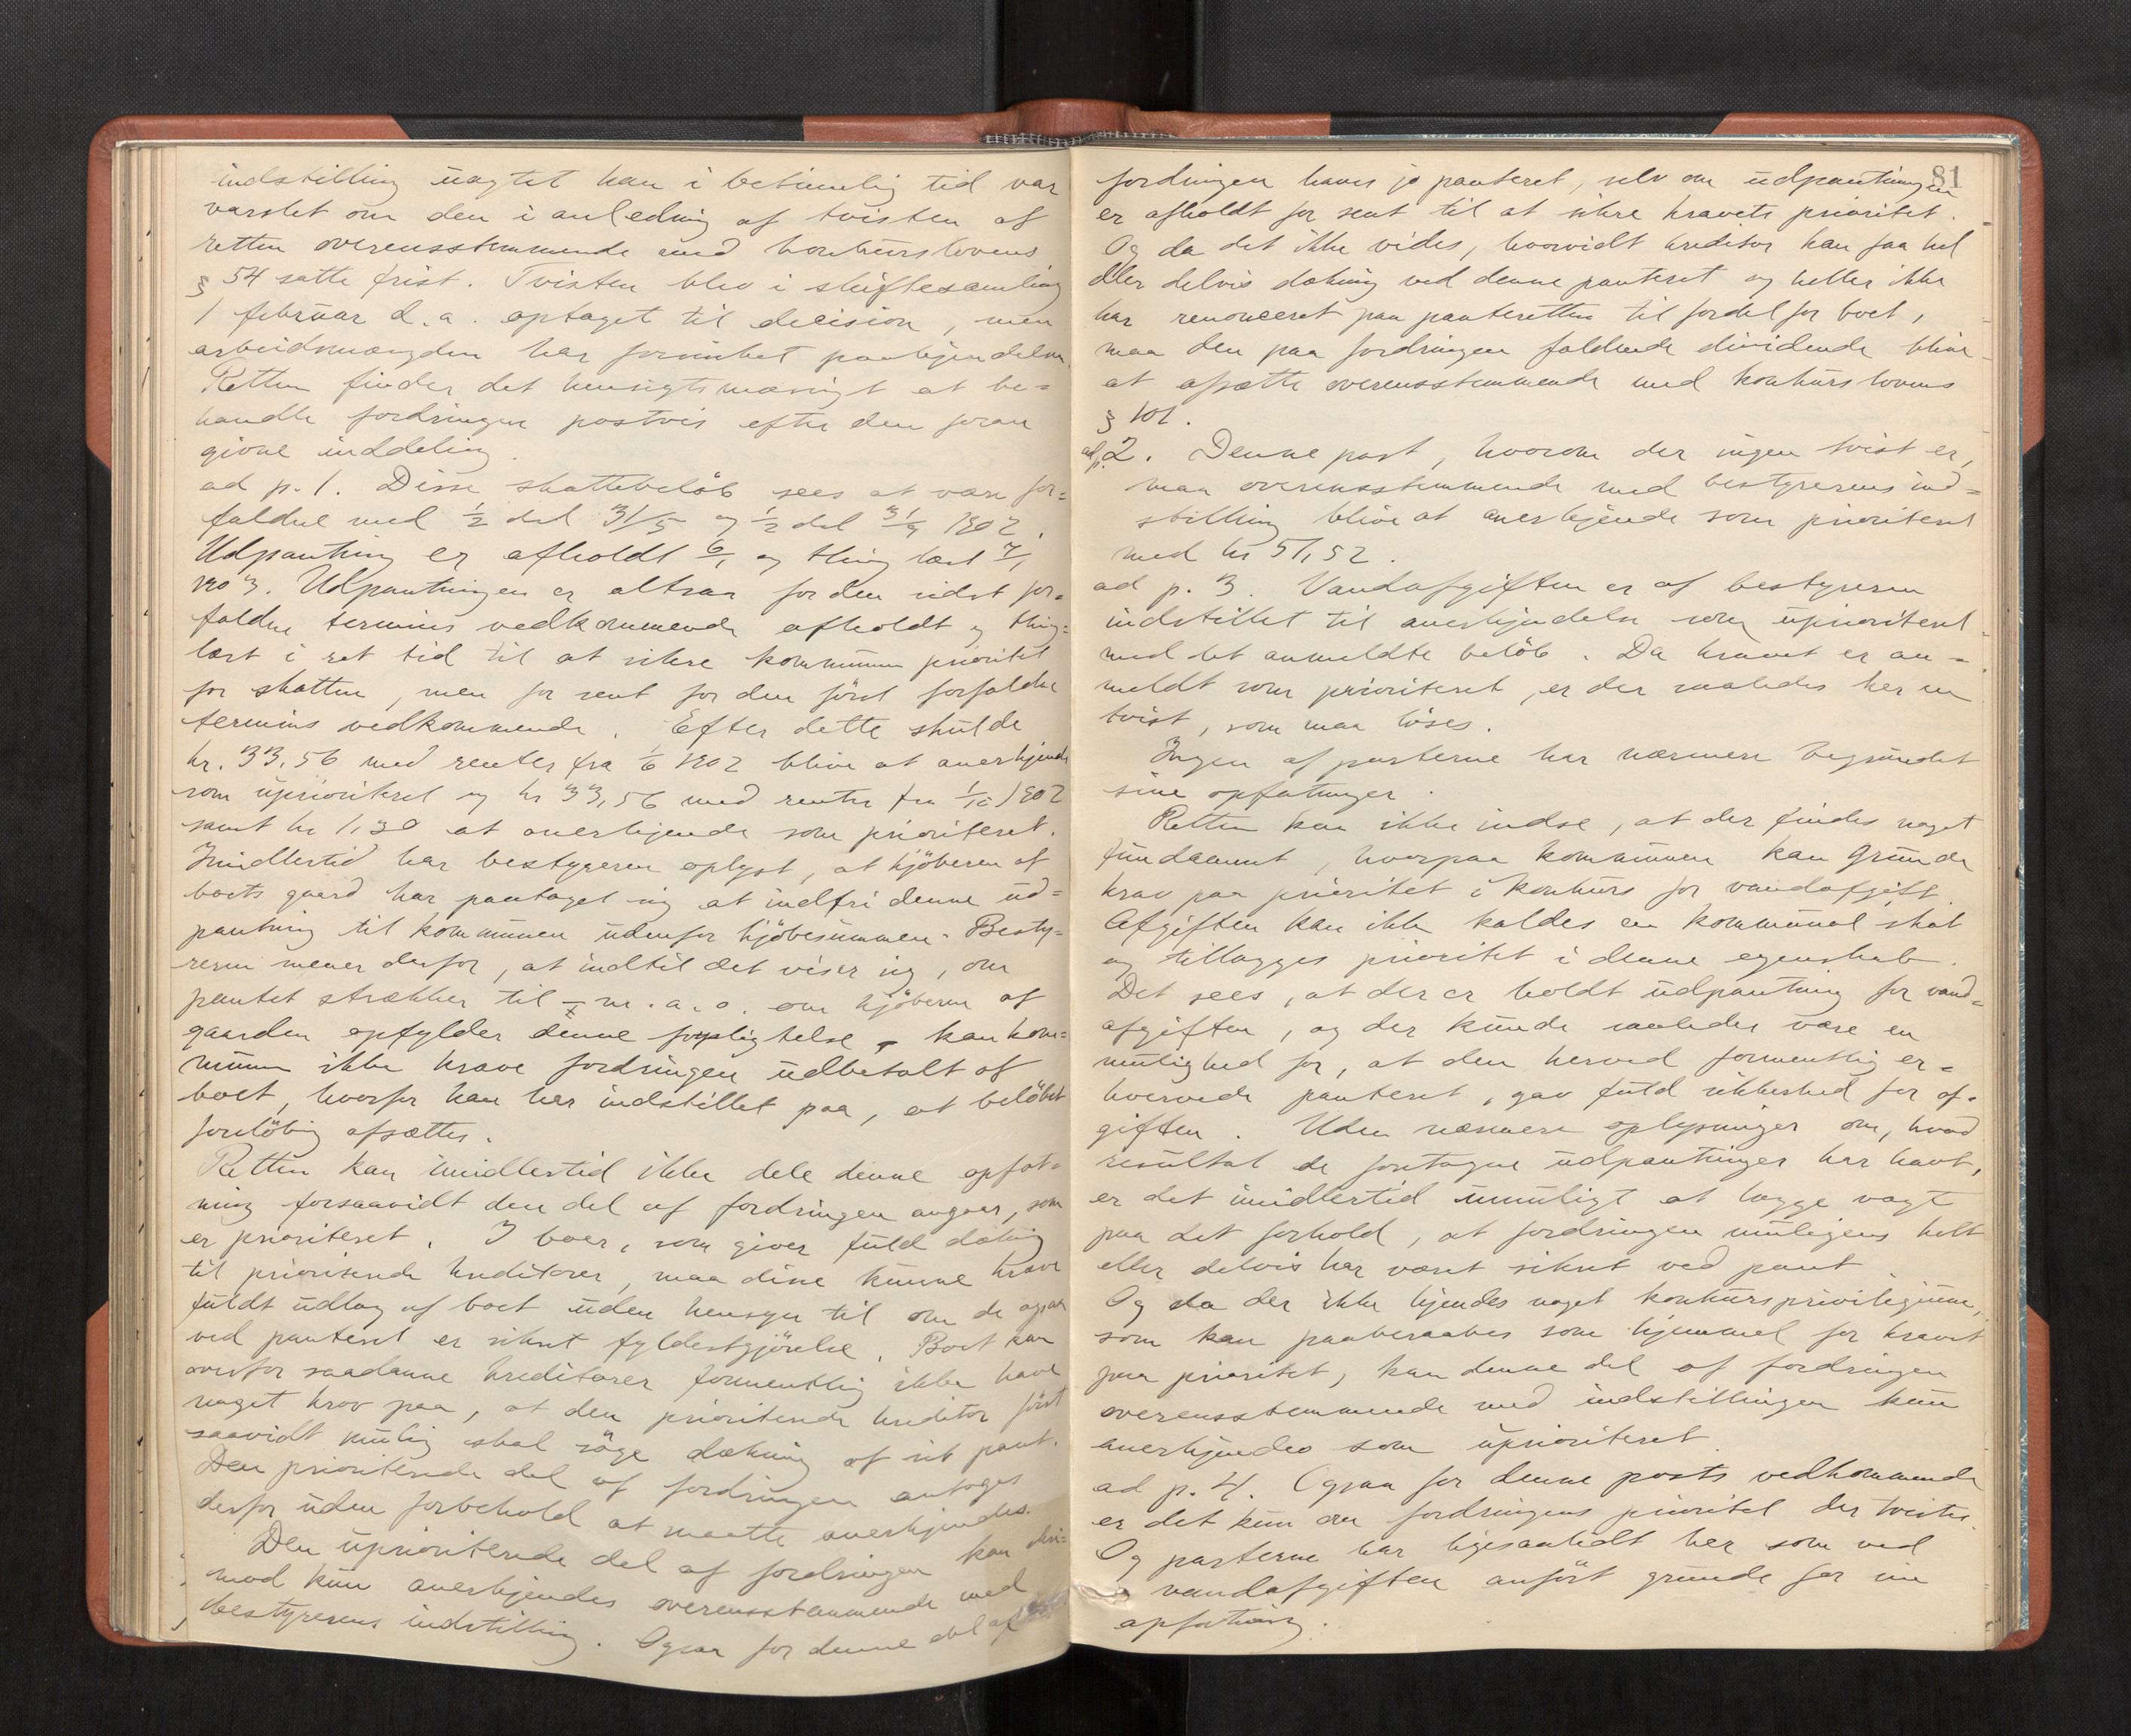 indstilling uagtet han i betimelig tid var
varslet om den i anledning af tvisten af
retten overensstemmende med konkurslovens
§ 54 satte frist. Tvisten blev i skiftesamling
1 februar d.a. optaget til decision, men
arbeidsmængden har forsinket paakjendelsen.
Retten finder det hensigtsmæssigt at be=
handle fordringen postvis efter den foran
givne inddeling.
ad p. 1. Disse skattebeløb sees at være for=
faldne med ½ del 31/5 og ½ del 31/9 1902.
Udpantning er afholdt 6/1 og thinglæst 7/1
1903. Udpantningen er altsaa for den sidst for=
faldne termins vedkommende afholdt og thing=
læst i ret tid til at sikre kommunen prioritet
for skatten, men for sent for den först forfaldne
termins vedkommende. Efter dette skulde
kr. 33,56 med renter fra 1/6 1902 blive at anerkjende
som uprioriteret og kr 33,56 med renter fra 1/10 1902
samt kr 1,30 at anerkjende som prioriteret.
Imidlertid har bestyreren oplyst, at kjöberen af
boets gaard har paataget sig at indfri denne ud=
pantning til kommunen udenfor kjöbesummen. Besty=
reren mener derfor, at indtil det viser sig, om
pantet strækker til – m.a.o. om kjöberen af
gaarden opfylder denne forpligtelse – kan kom=
munen ikke kræve fordringen udbetalt af
boet, hvorfor han har indstillet paa, at belöbet
forelöbig afsættes.
Retten kan imidlertid ikke dele denne opfat=
ning forsaavidt den del af fordringen angaar, som
er prioriteret. I boer, som giver fuld dækning
til prioriterede kreditorer, maa disse kunne kræve
fuldt udlæg af boet uden hensyn til om de ogsaa
ved panteret er sikret fyldestgjörelse. Boet kan
overfor saadanne kreditorer formentlig ikke have
noget krav paa, at den prioriterede kreditor först
saavidt mulig skal söge dækning af sit pant.
Den prioriterede del af fordringen antages
derfor uden forbehold at maatte anerkjendes.
Den uprioriterede del af fordringen kan der=
mod kun anerkjendes overensstemmende med
bestyrerens indstilling. Ogsaa for denne del af
81
fordringen haves jo panteret, selv om udpantningen
er afholdt for sent til at sikre kravets prioritet.
Og da det ikke vides, hvorvidt kreditor kan faa hel
eller delvis dækning ved denne panteret og heller ikke
har renonceret paa panteretten til fordel for boet,
maa den paa fordringen faldende dividende blive
at afsætte overensstemmende med konkurslovens
§ 101.
ad p. 2. Denne post, hvorom der ingen tvist er,
maa overensstemmende med bestyrerens ind=
stilling blive at anerkjende som prioriteret
med kr 51,52.
ad p. 3. Vandafgiften er af bestyreren
indstillet til anerkjendelse som uprioriteret
med det anmeldte belöb. Da kravet er an=
meldt som prioriteret, er der saaledes her en
tvist, som maa löses.
Ingen af parterne har nærmere begrundet
sine opfatninger.
Retten kan ikke indse, at der findes noget
fundament, hvorpaa kommunen kan grunde
krav paa prioritet i konkurs for vandafgift.
Afgiften kan ikke kaldes en kommunal skat
og tillægges prioritet i denne egenskab.
Det sees, at der er holdt udpantning for vand=
afgiften, og der kunde saaledes være en
mulighed for, at den herved formentlig er=
hvervede panteret, gav fuld sikkerhed for af=
giften. Uden nærmere oplysninger om, hvad
resultat de foretagne udpantninger har havt,
er det imidlertid umuligt at lægge vægt
paa det forhold, at fordringen muligens helt
eller delvis har været sikret ved pant.
Og da der ikke kjendes noget konkursprivilegium,
som kan paaberaabes som hjemmel for kravet
paa prioritet, kan denne del af fordringen
overensstemmende med indstillingen kun
anerkjendes som uprioriteret.
ad p. 4. Ogsaa for denne posts vedkommende
er det kun om fordringens prioritet der tvistes.
Og parterne har ligesaalidt her som ved
vandafgiften anfört grunde for sin
opfatning.